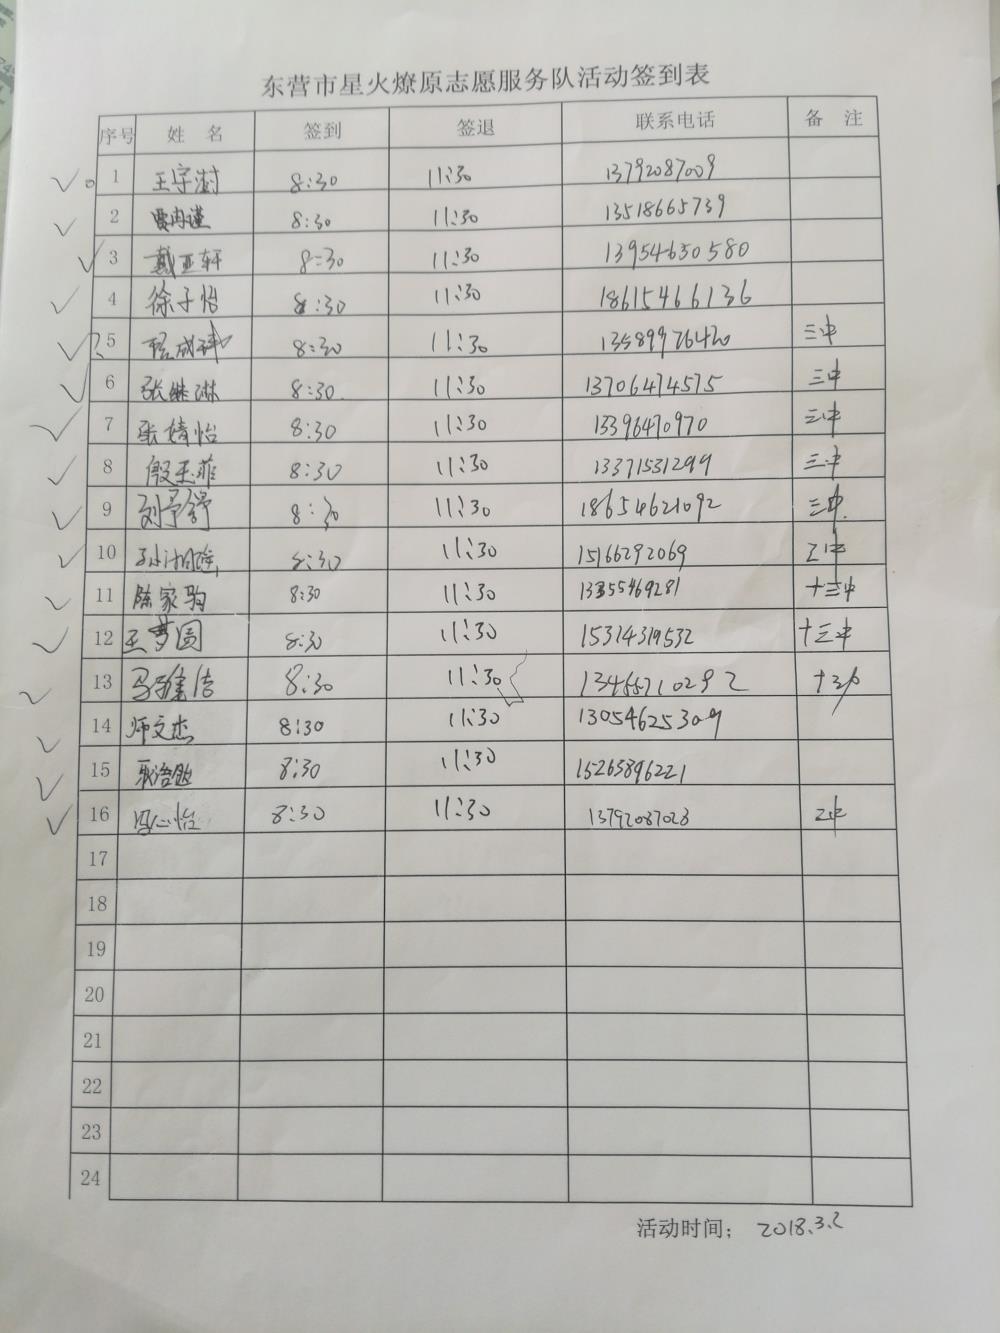 东营市星火燎原志愿服务队活动签到表
序号 姓 名 签到 签退 联系电话 备 注
1 王宇澍 8:30 11:30 13792087009
2 贾冉谨 8:30 11:30 13518665739
3 戴亚轩 8:30 11:30 13954630580
4 徐子怡 8:30 11:30 18615466136
5 程成祎 8:30 11:30 13589976420 三中
6 张继琳 8:30 11:30 13706474575 三中
7 张婧怡 8:30 11:30 13396470970 三中
8 殷玉菲 8:30 11:30 13371531299 三中
9 刘予舒 8:30 11:30 18654621092 三中
10 8:30 11:30 15166292069 二中
11 陈家驹 8:30 11:30 13355469281 十三中
12 王梦圆 8:30 11:30 15314319532 十三中
13 8:30 11:30 13466710292 十三中
14 师文杰 8:30 11:30 13054625309
15 8:30 11:30 15263896221
16 冯心怡 8:30 11:30 13792087028 二中
17
18
19
20
21
22
23
24
活动时间: 2018.3.2